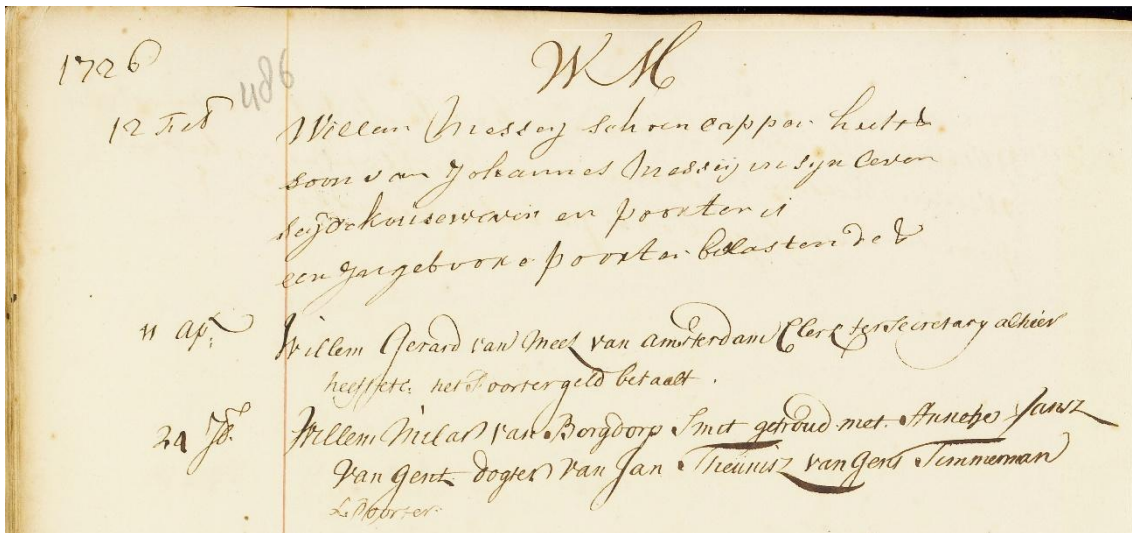 1726
486
W M
12 Feb Willem Messeij schoenlapper heeft
soon van Johannes Messeij in syn leven
seijdekousewever en poorter is
een Ingeboore poorter belastende
11 ap: Willem Gerard van Meel van Amsterdam Clerk ter Secretary alhier
heeft etc: het Poortergeld betaelt.
24 Willem van Borgdorp Smit getroud met Annetje Jansz
van Gent dogter van Jan Theunisz van Gent Timmerman
& Poorter.